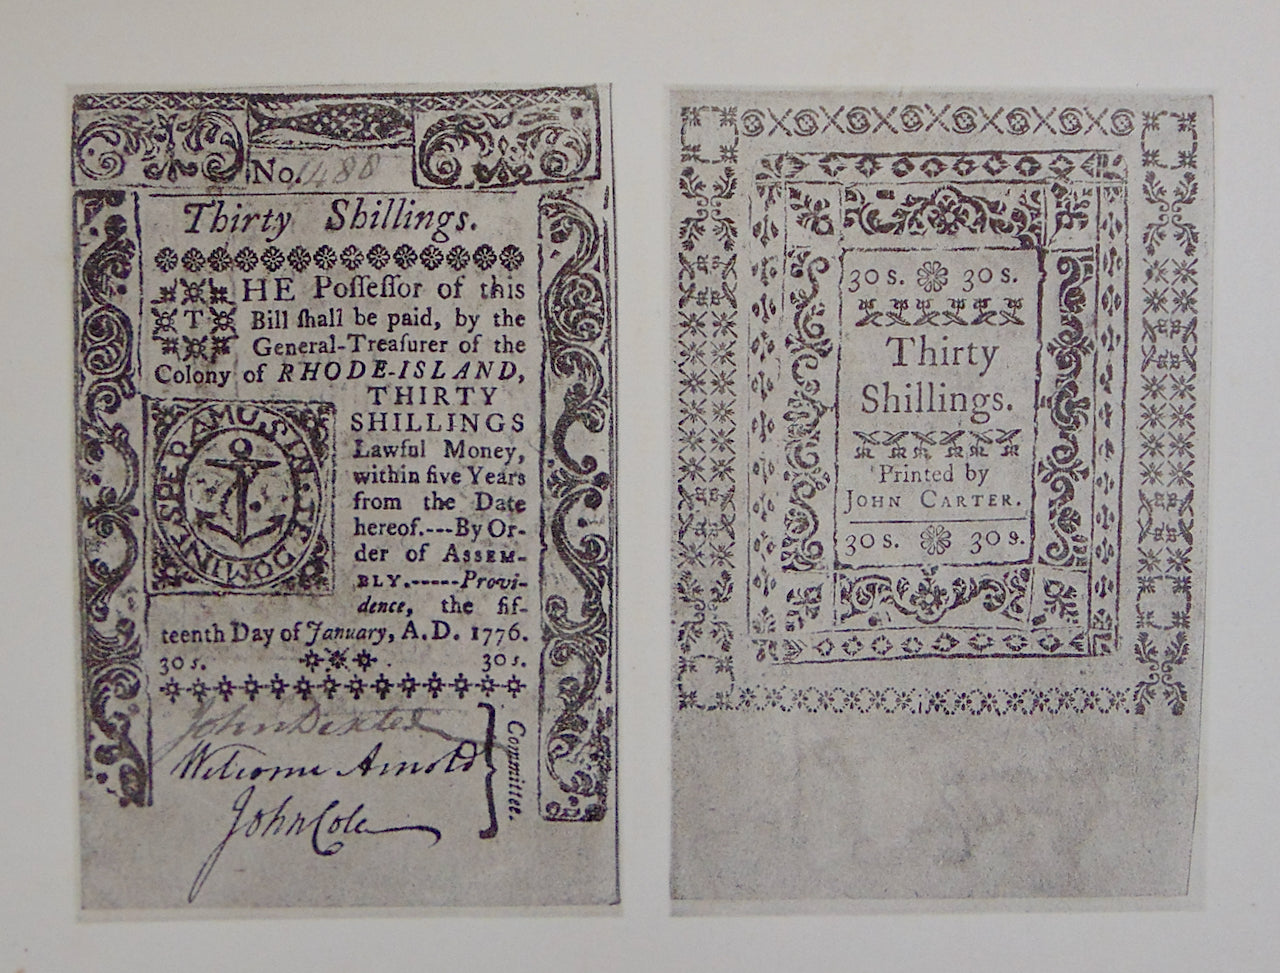 No. 1488
Thirty Shillings.
THE Poſſeſſor of this
Bill ſhall be paid, by the
General-Treaſurer of the
Colony of RHODE-ISLAND,
THIRTY
SHILLINGS
Lawful Money,
within five Years
from the Date
hereof.---By Or-
der of ASSEM-
BLY.-----Provi-
dence, the fif-
teenth Day of January, A.D. 1776.
IN TE DOMINE SPERAMUS
30 s. 30 s.
John Dexter
Welcome Arnold
John Cole
Committee.
30 s. 30 s.
Thirty
Shillings.
Printed by
JOHN CARTER.
30 s. 30 s.